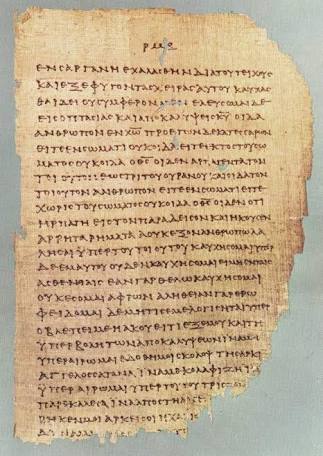 ρμε
ενσαργανηεχαλασθηνδιατουτειχους
καιεξεφυγοντασχειρασαυτουκαυχας
θαιδειουσυμφερονμενελευσομαιδε
εισοπτασιασκαιαποκαλυψεισκυοιδα
ανθρωπονενχωπροετωνδεκατεσσαρων
ειτεενσωματιουκοιδαειτεεκτοστουσω
ματοσουκοιδαοθσοιδεναρπαγεντατον
τοιουτονεωστριτουουρανουκαιοιδατον
τοιουτονανθρωπονειτεενσωματιειτε
χωριστουσωματοσουκοιδαοθσοιδενοτι
ηρπαγηειστονπαραδεισονκαιηκουσεν
αρρηταρηματααουκεξονανθρωπωλα
λησαιυπερτουτοιουτουκαυχησομαιυπερ
δεεμαυτουουδενκαυχησομαιειμηενταις
ασθενειαισεανγαρθελωκαυχησομαι
ουκεσομαιαφρωναληθειανγαρερω
φειδομαιδεμητισεμελογισηταιυπερ
οβλεπειμεηακουειτιεξεμουκαιτη
υπερβολητωναποκαλυψεωνιναμη
υπεραιρωμαιεδοθημοισκολοψτησαρκι
αγγελοσσαταναιναμεκολαφιζηινα
υπεραιρωμαιυπερτουτουτριστον
παρεκαλεσαινααποστη
ρηκενμοιαρκεισοιηχαρις